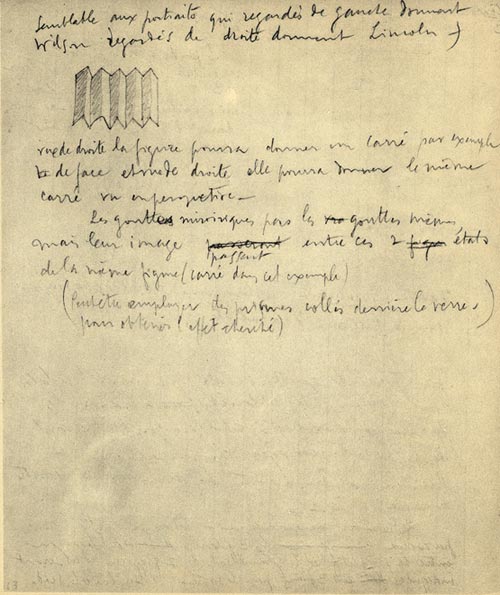 semblable aux portraits qui regardés de gauche donnent
Wilson regardés de droite donnent Lincoln —)
vue de droite la figure pourra donner un carré par exemple
de face et vue de droite elle pourra donner le même
carré vu en perspective —
Les gouttes miroiriques pas les gouttes mêmes
mais leur image passeront entre ces 2 figu états
passent
de la même figure (carré dans cet exemple)
(Peut être employer des prismes collés derrière le verre.
pour obtenir l'effet cherché)
13